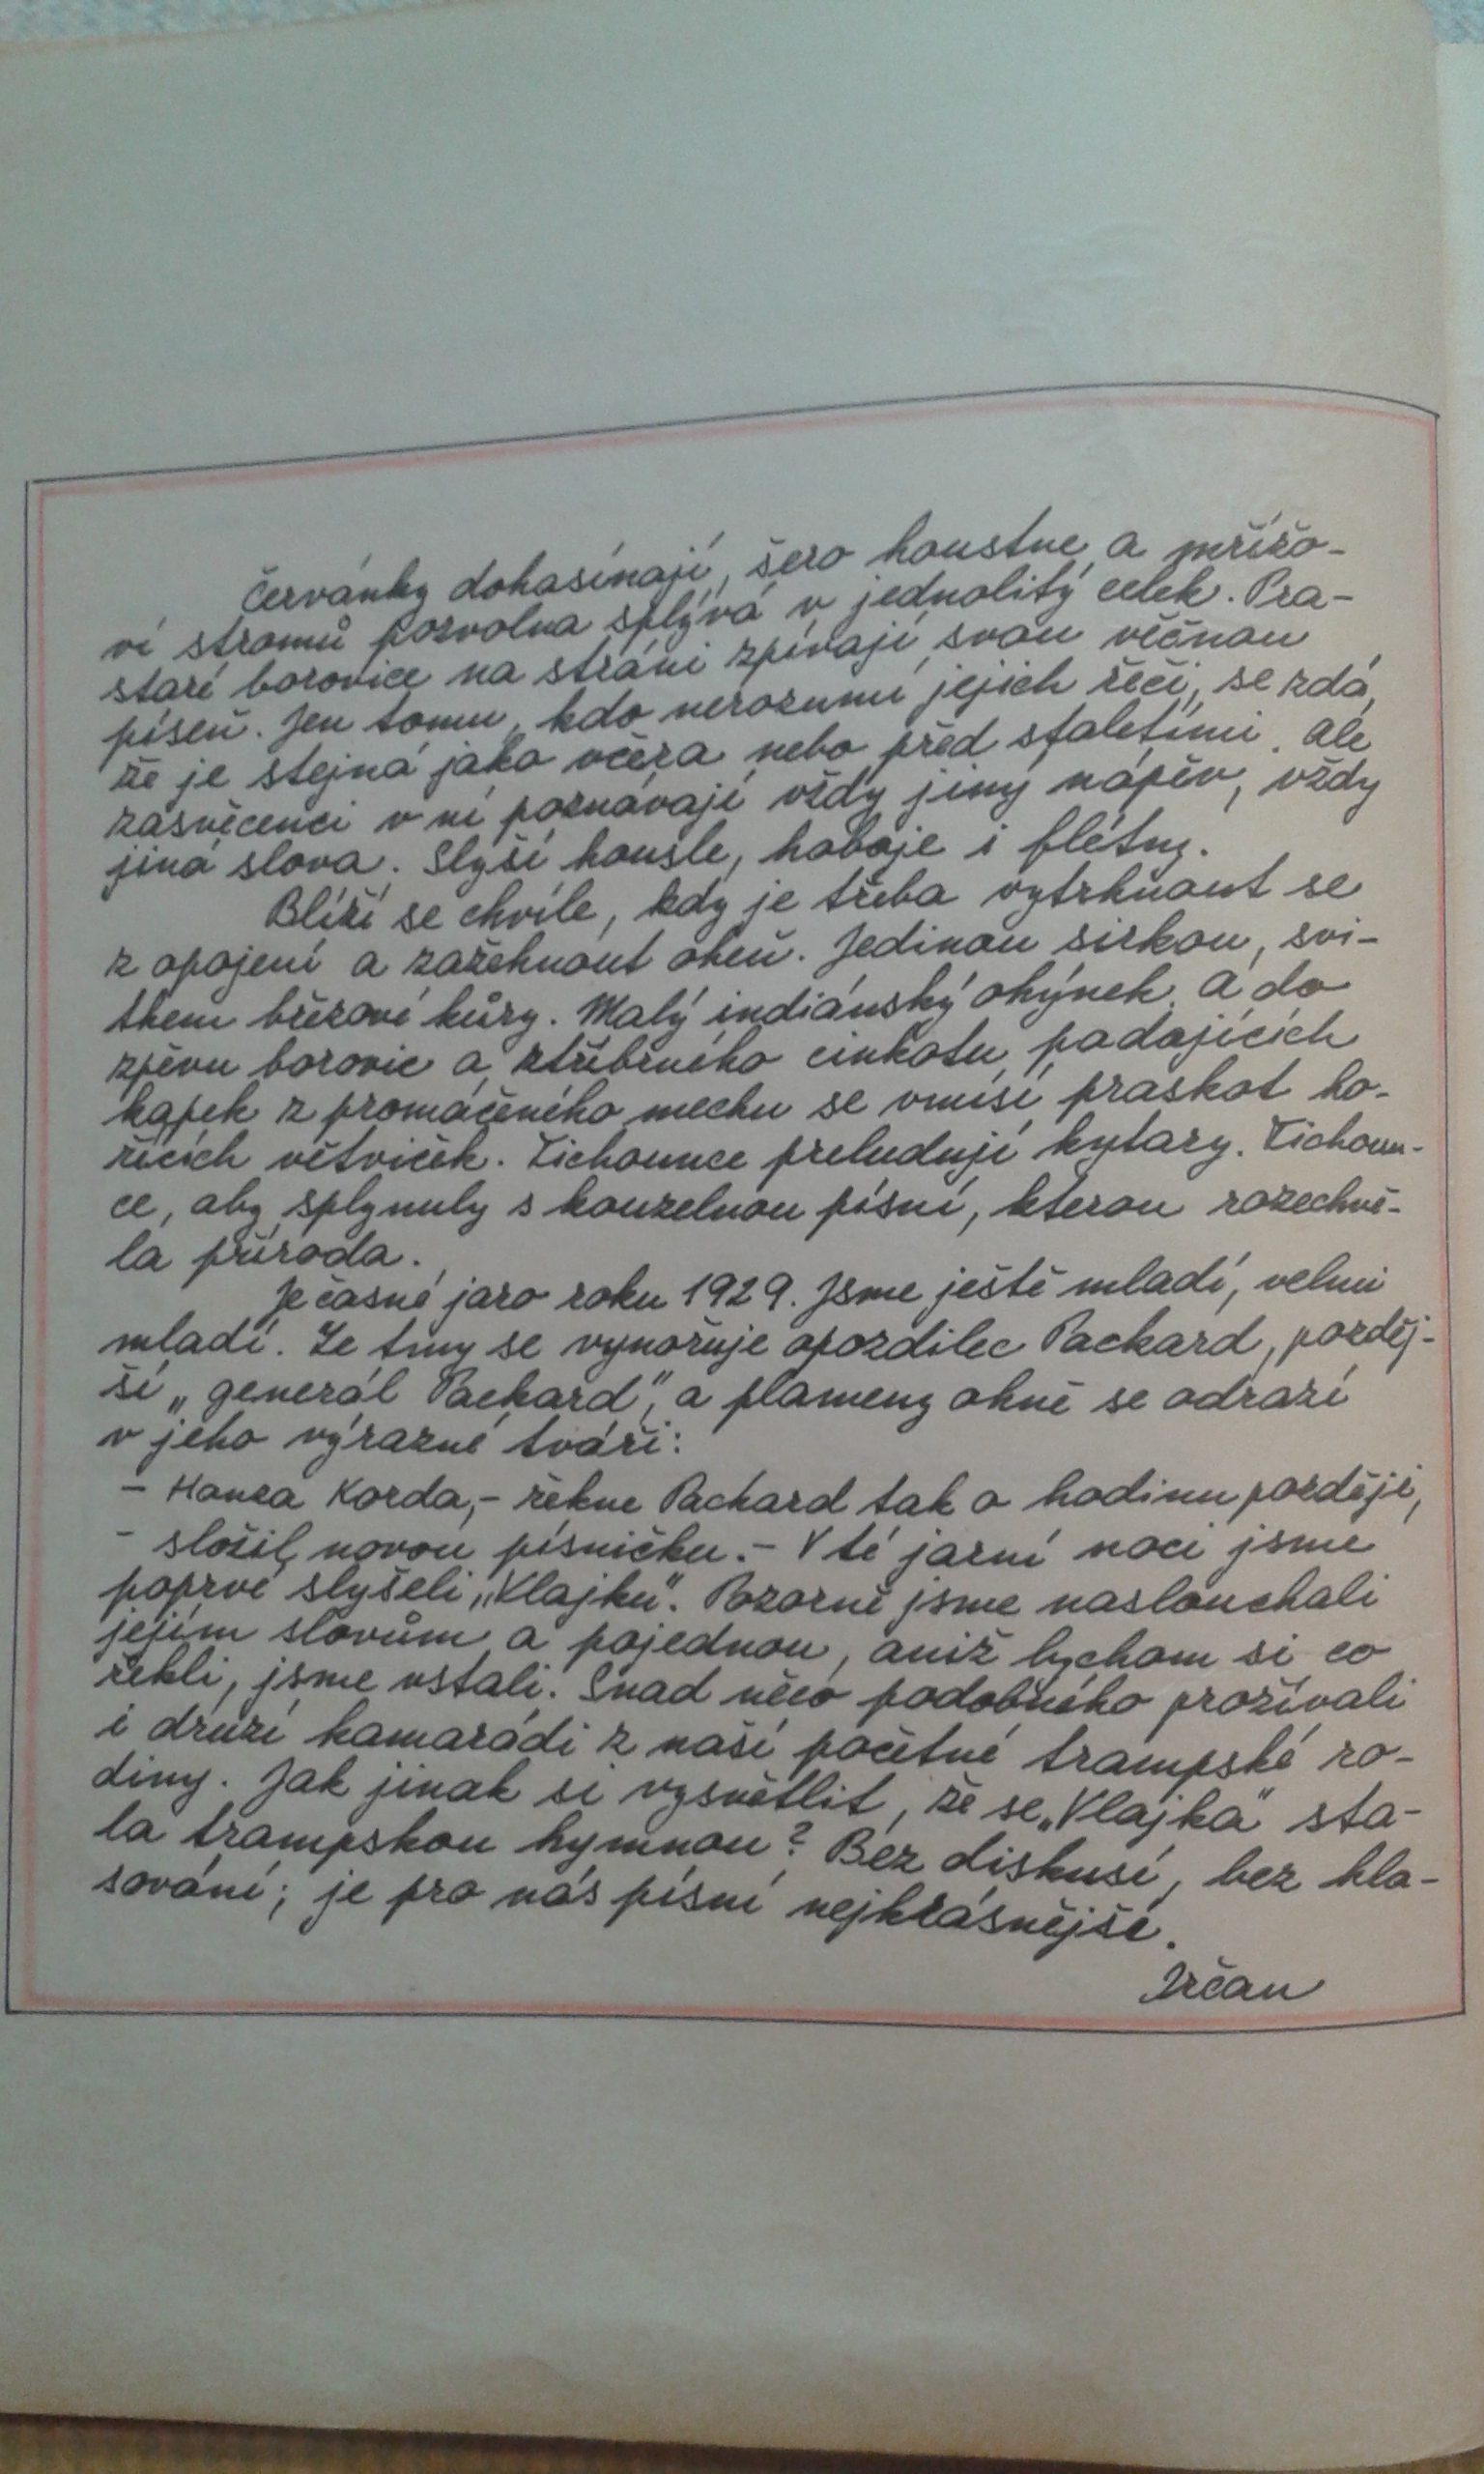 Červánky dohasínají, šero houstne a mřížo-
ví stromů pozvolna splývá v jednolitý celek. Pra-
staré borovice na stráni zpívají svou věčnou
píseň. Jen tomu, kdo nerozumí jejich řeči, se zdá,
že je stejná jako včera nebo před staletími. Ale
zasvěcenci v ní poznávají vždy jiný nápěv, vždy
jiná slova. Slyší housle, hoboje i flétny.
Blíží se chvíle, kdy je třeba vytrhnout se
z opojení a zažehnout oheň. Jedinou sirkou, svi-
tkem březové kůry. Malý indiánský ohýnek. A do
zpěvu borovic a stříbrného cinkotu padajících
kapek z promáčeného mechu se vmísí praskot ho-
řících větviček. Tichounce preludují kytary. Tichoun-
ce, aby splynuly s kouzelnou písní, kterou rozechvě-
la příroda.
Je časné jaro roku 1929. Jsme ještě mladí, velmi
mladí. Ze tmy se vynořuje opozdilec Packard, pozděj-
ší „generál Packard", a plameny ohně se odrazí
v jeho výrazné tváři:
- Honza Korda,- řekne Packard tak o hodinu později,
- složil novou písničku.- V té jarní noci jsme
poprvé slyšeli „Vlajku". Pozorně jsme naslouchali
jejím slovům a pojednou, aniž bychom si co
řekli, jsme vstali. Snad něco podobného prožívali
i druzí kamarádi z naší početné trampské ro-
diny. Jak jinak si vysvětlit, že se „Vlajka" sta-
la trampskou hymnou? Bez diskusí, bez hla-
sování; je pro nás písní nejkrásnější.